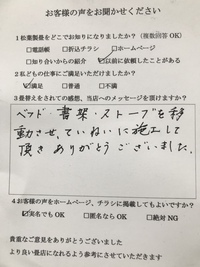 お客様の声をお聞かせください
1松葉製畳をどこでお知りになりましたか?(複数回答OK)
□電話帳 □折込チラシ □ホームページ
□知り合いからの紹介 ☑以前に依頼したことがある
2私どもの仕事にご満足いただけましたか?
☑満足 □普通 □不満
3畳替えをされての感想、当店へのメッセージを頂けますか?
ベッド・書架・ストーブを移
動させ、ていねいに施工して
頂きありがとうございました。
4お客様の声をホームページ、チラシに掲載してもよいですか?
☑実名でもOK □匿名ならOK □絶対NG
貴重なご意見をありがとうございました
より良い畳店になれるよう参考にさせていただきます